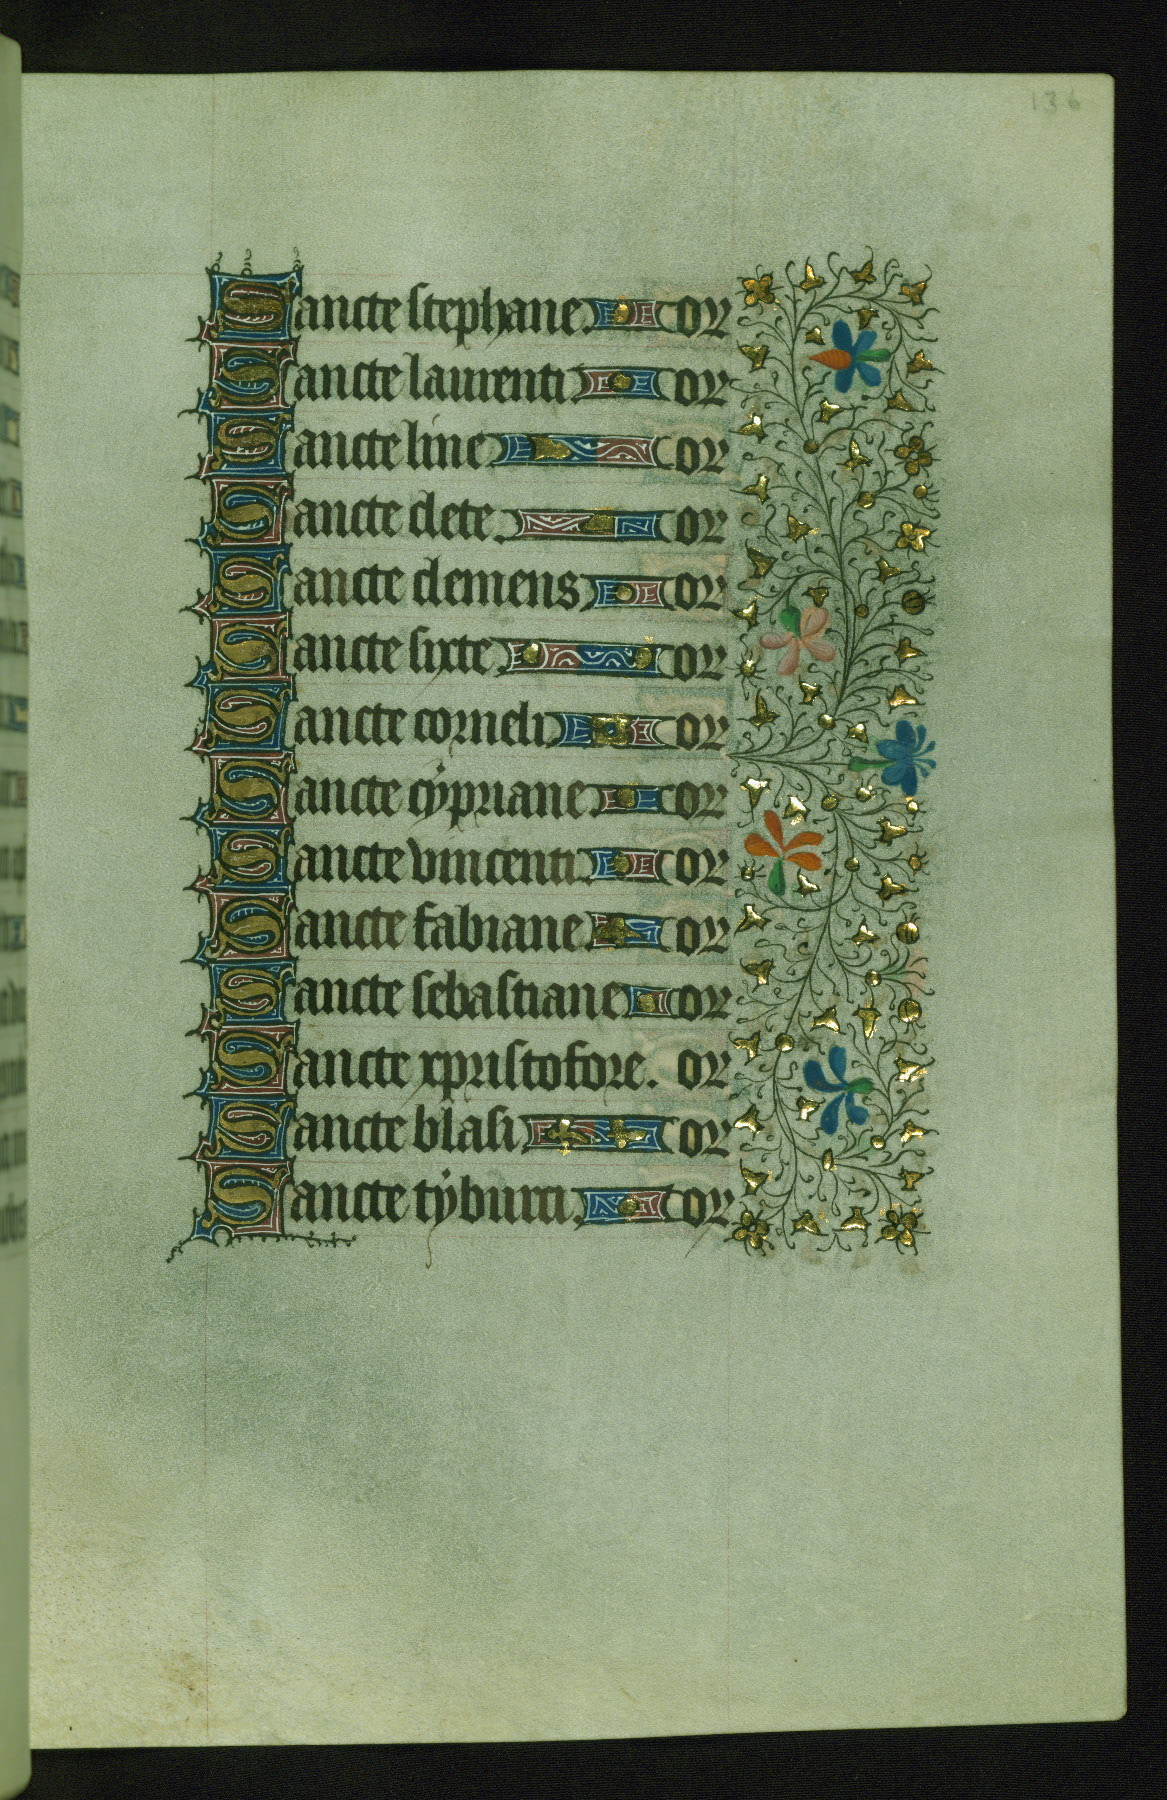 136
Sancte stephane. or
Sancte laurenti or
Sancte line or
Sancte clete. or
Sancte clemens or
Sancte sixte or
Sancte corneli or
Sancte cypriane or
Sancte vincenti. or
Sancte fabiane or
Sancte sebastiane or
Sancte xpristofore. or
Sancte blasi or
Sancte tyburti. or